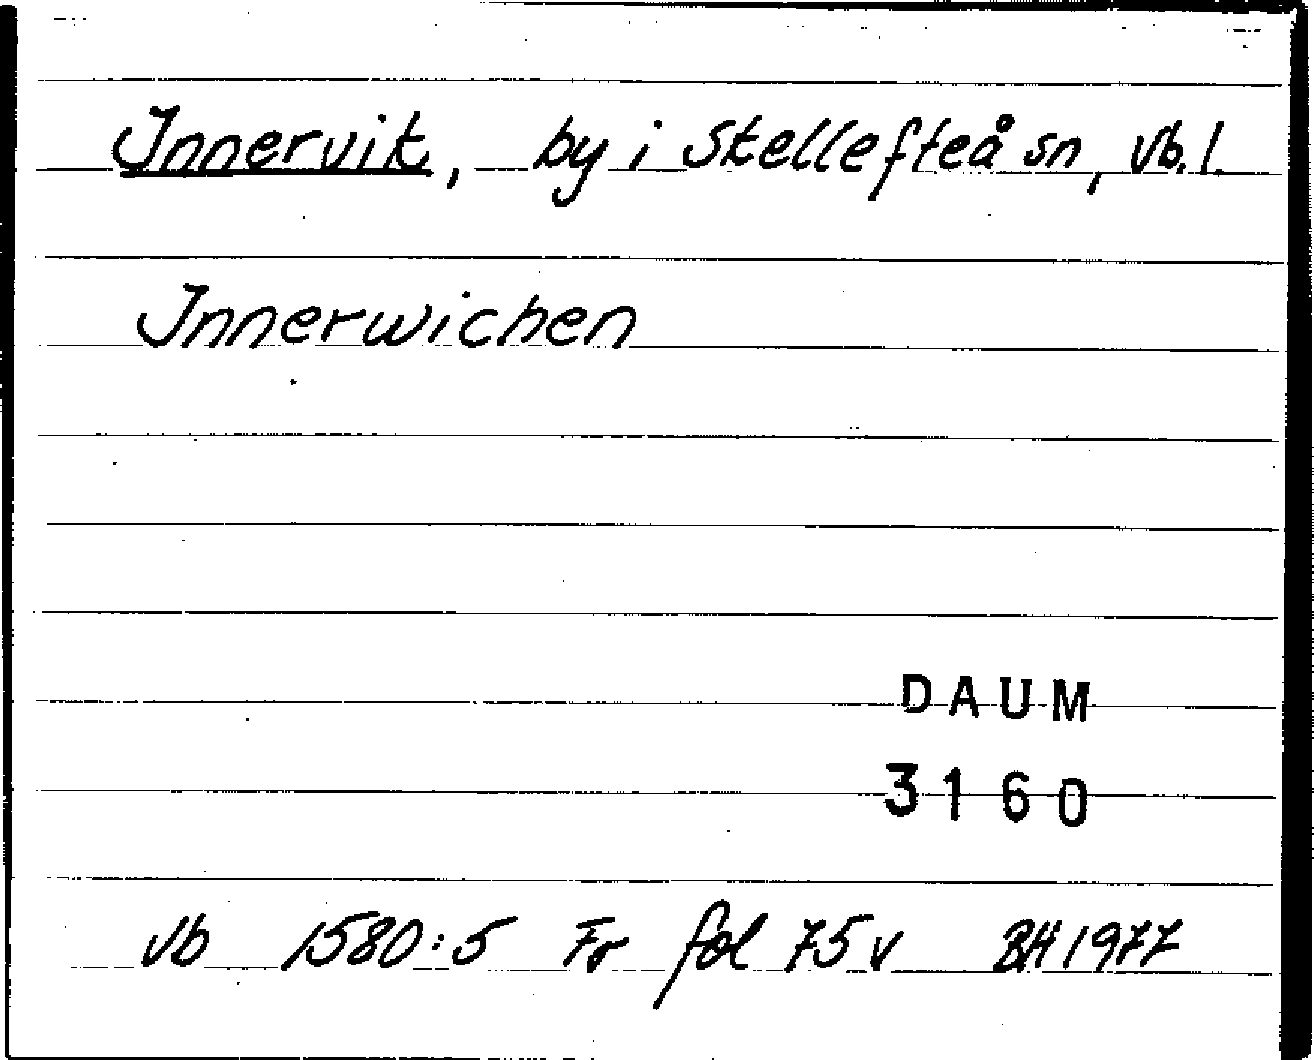 Innervik, by i Skellefteå sn, Vb.l.
Innerwichen
DAUM
3160
Vb 1580:5 Fr fol 75v BH 1977